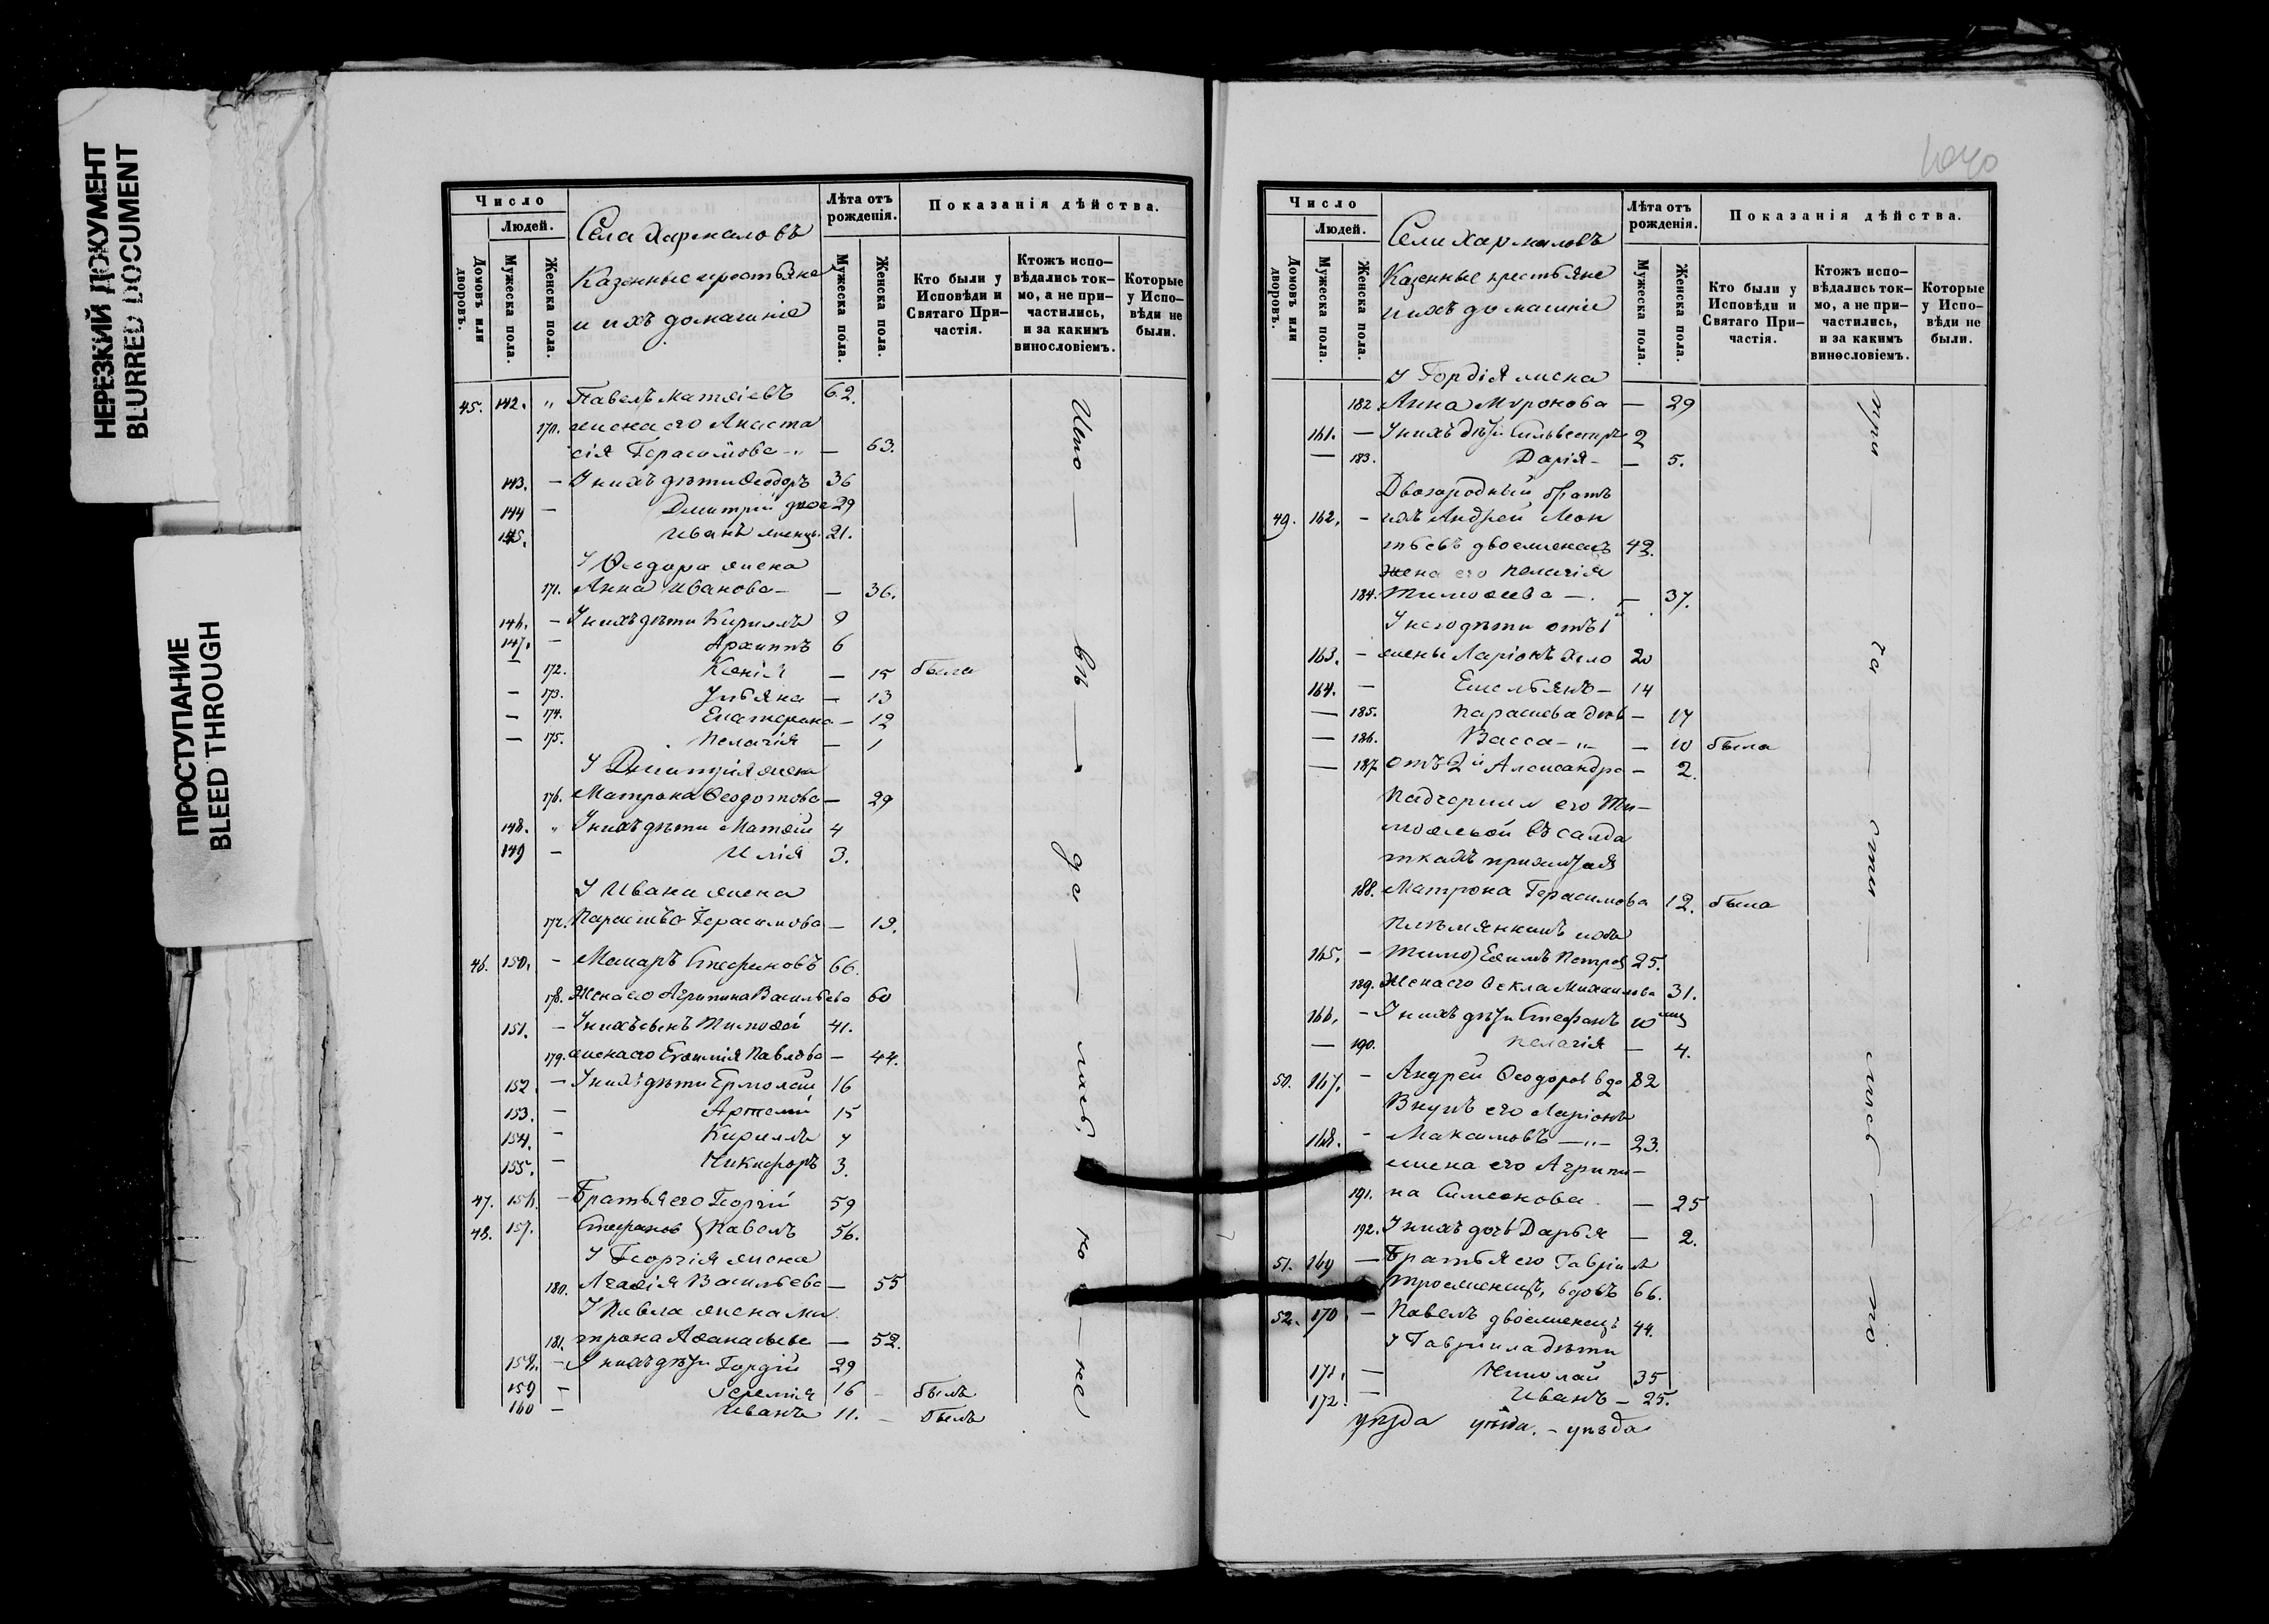 НЕРЕЗКИЙ ДОКУМЕНТ
BLURRED DOCUMENT
ПРОСТУПАНИЕ
BLEED THROUGH
Число
Людей.
Домовъ или дворовъ.
Мужеска пола.
Женска пола.
Села Хармаловъ
Казенные крестьяне
и ихъ домашніе
Лѣта отъ рожденія.
Мужеска пола.
Женска пола.
Показанія дѣйства.
Кто были у Исповѣди и Святаго Причастія.
Ктожъ исповѣдались токмо, а не причастились, и за какимъ винословіемъ.
Которые у Исповѣди не были.
45. 142. „ Павелъ Матѳіевъ 62.
170. жена его Анаста
сія Герасимова — 63.
143. — У нихъ дѣти Ѳеодоръ 36
144 — Дмитрій 29
145. Иванъ 21.
У Ѳеодора жена
171. Анна Иванова — — 36.
146. — У нихъ дѣти Кириллъ 9
147. — Архиппъ 6
— 172. Ксенія — 15 была
— 173. Ульяна — 13
— 174. Екатерина — 12
— 175. Пелагія — 1
У Дмитрія жена
176. Матрона Ѳеодотова — 29
148. „ У нихъ дѣти Матѳій 4
149 — Илія 3.
У Ивана жена
177. Герасимова — 19.
46. 150. — Макаръ Стефановъ 66.
178. Жена его Агрипина Васильева 60
151. — У нихъ сынъ Тимоѳей 41.
179. жена его Евѳимія Павлова — 44.
152. — У нихъ дѣти Ермолай 16
153. — Артемій 15
154. — Кириллъ 7
155. — Никифоръ 3.
47. 156. — Братья его Георгій 59
48. 157. Стефанов } Павелъ 56.
У Георгія жена
180. Васильева — 55
У Павла жена Ма
181. трона Аѳанасьева — 52.
158. — У нихъ дѣти Гордій 29
159 — Іеремія 16 — былъ
160 — Иванъ 11. — былъ
Число
Людей.
Домовъ или дворовъ.
Мужеска пола.
Женска пола.
Села Хармаловъ
Казенные крестьяне
и ихъ домашніе
Лѣта отъ рожденія.
Мужеска пола.
Женска пола.
Показанія дѣйства.
Кто были у Исповѣди и Святаго Причастія.
Ктожъ исповѣдались токмо, а не причастились, и за какимъ винословіемъ.
Которые у Исповѣди не были.
У Гордія жена
182. Анна Миронова — 29
161. — У нихъ дѣти Сильвестръ 2
— 183. Дарія — — 5.
Двоюродный братъ
49. 162. — ихъ Андрей Леон
тьевъ двоеженецъ 42.
Жена его Пелагія
184. Тимоѳеева — . — 37.
У него дѣти отъ 1й
163. — жены Ларіонъ 20
164. — Емельянъ — 14
— 185. — 17
— 186. Васса — „ — 10 была
— 187. отъ 2й Александра — 2.
Падчерица его Ти—
моѳеевой въ салда
ткахъ прижитая
188. Матрона Герасимова 12. была
Племянникъ
165. — Евѳимъ Петров 25.
189. Жена его Ѳекла Михаилова 31.
166. — У нихъ дѣти Стефанъ 10
— 190. Пелагія — 4.
50. 167. — Андрей Ѳеодоров вдо 82
Внукъ его Ларіонъ
168. — Максимовъ — „ — 23.
жена его Агрипи—
191. на Симеонова. — 25
192. У нихъ дочь Дарья — 2.
51. 169 — Братья его Гавріил
троеженецъ, вдовъ 66.
52. 170. — Павелъ двоеженецъ 44.
У Гавріила дѣти
171. — Николай 35
172. — Иванъ — 25.
уѣзда уѣзда. — уѣзда